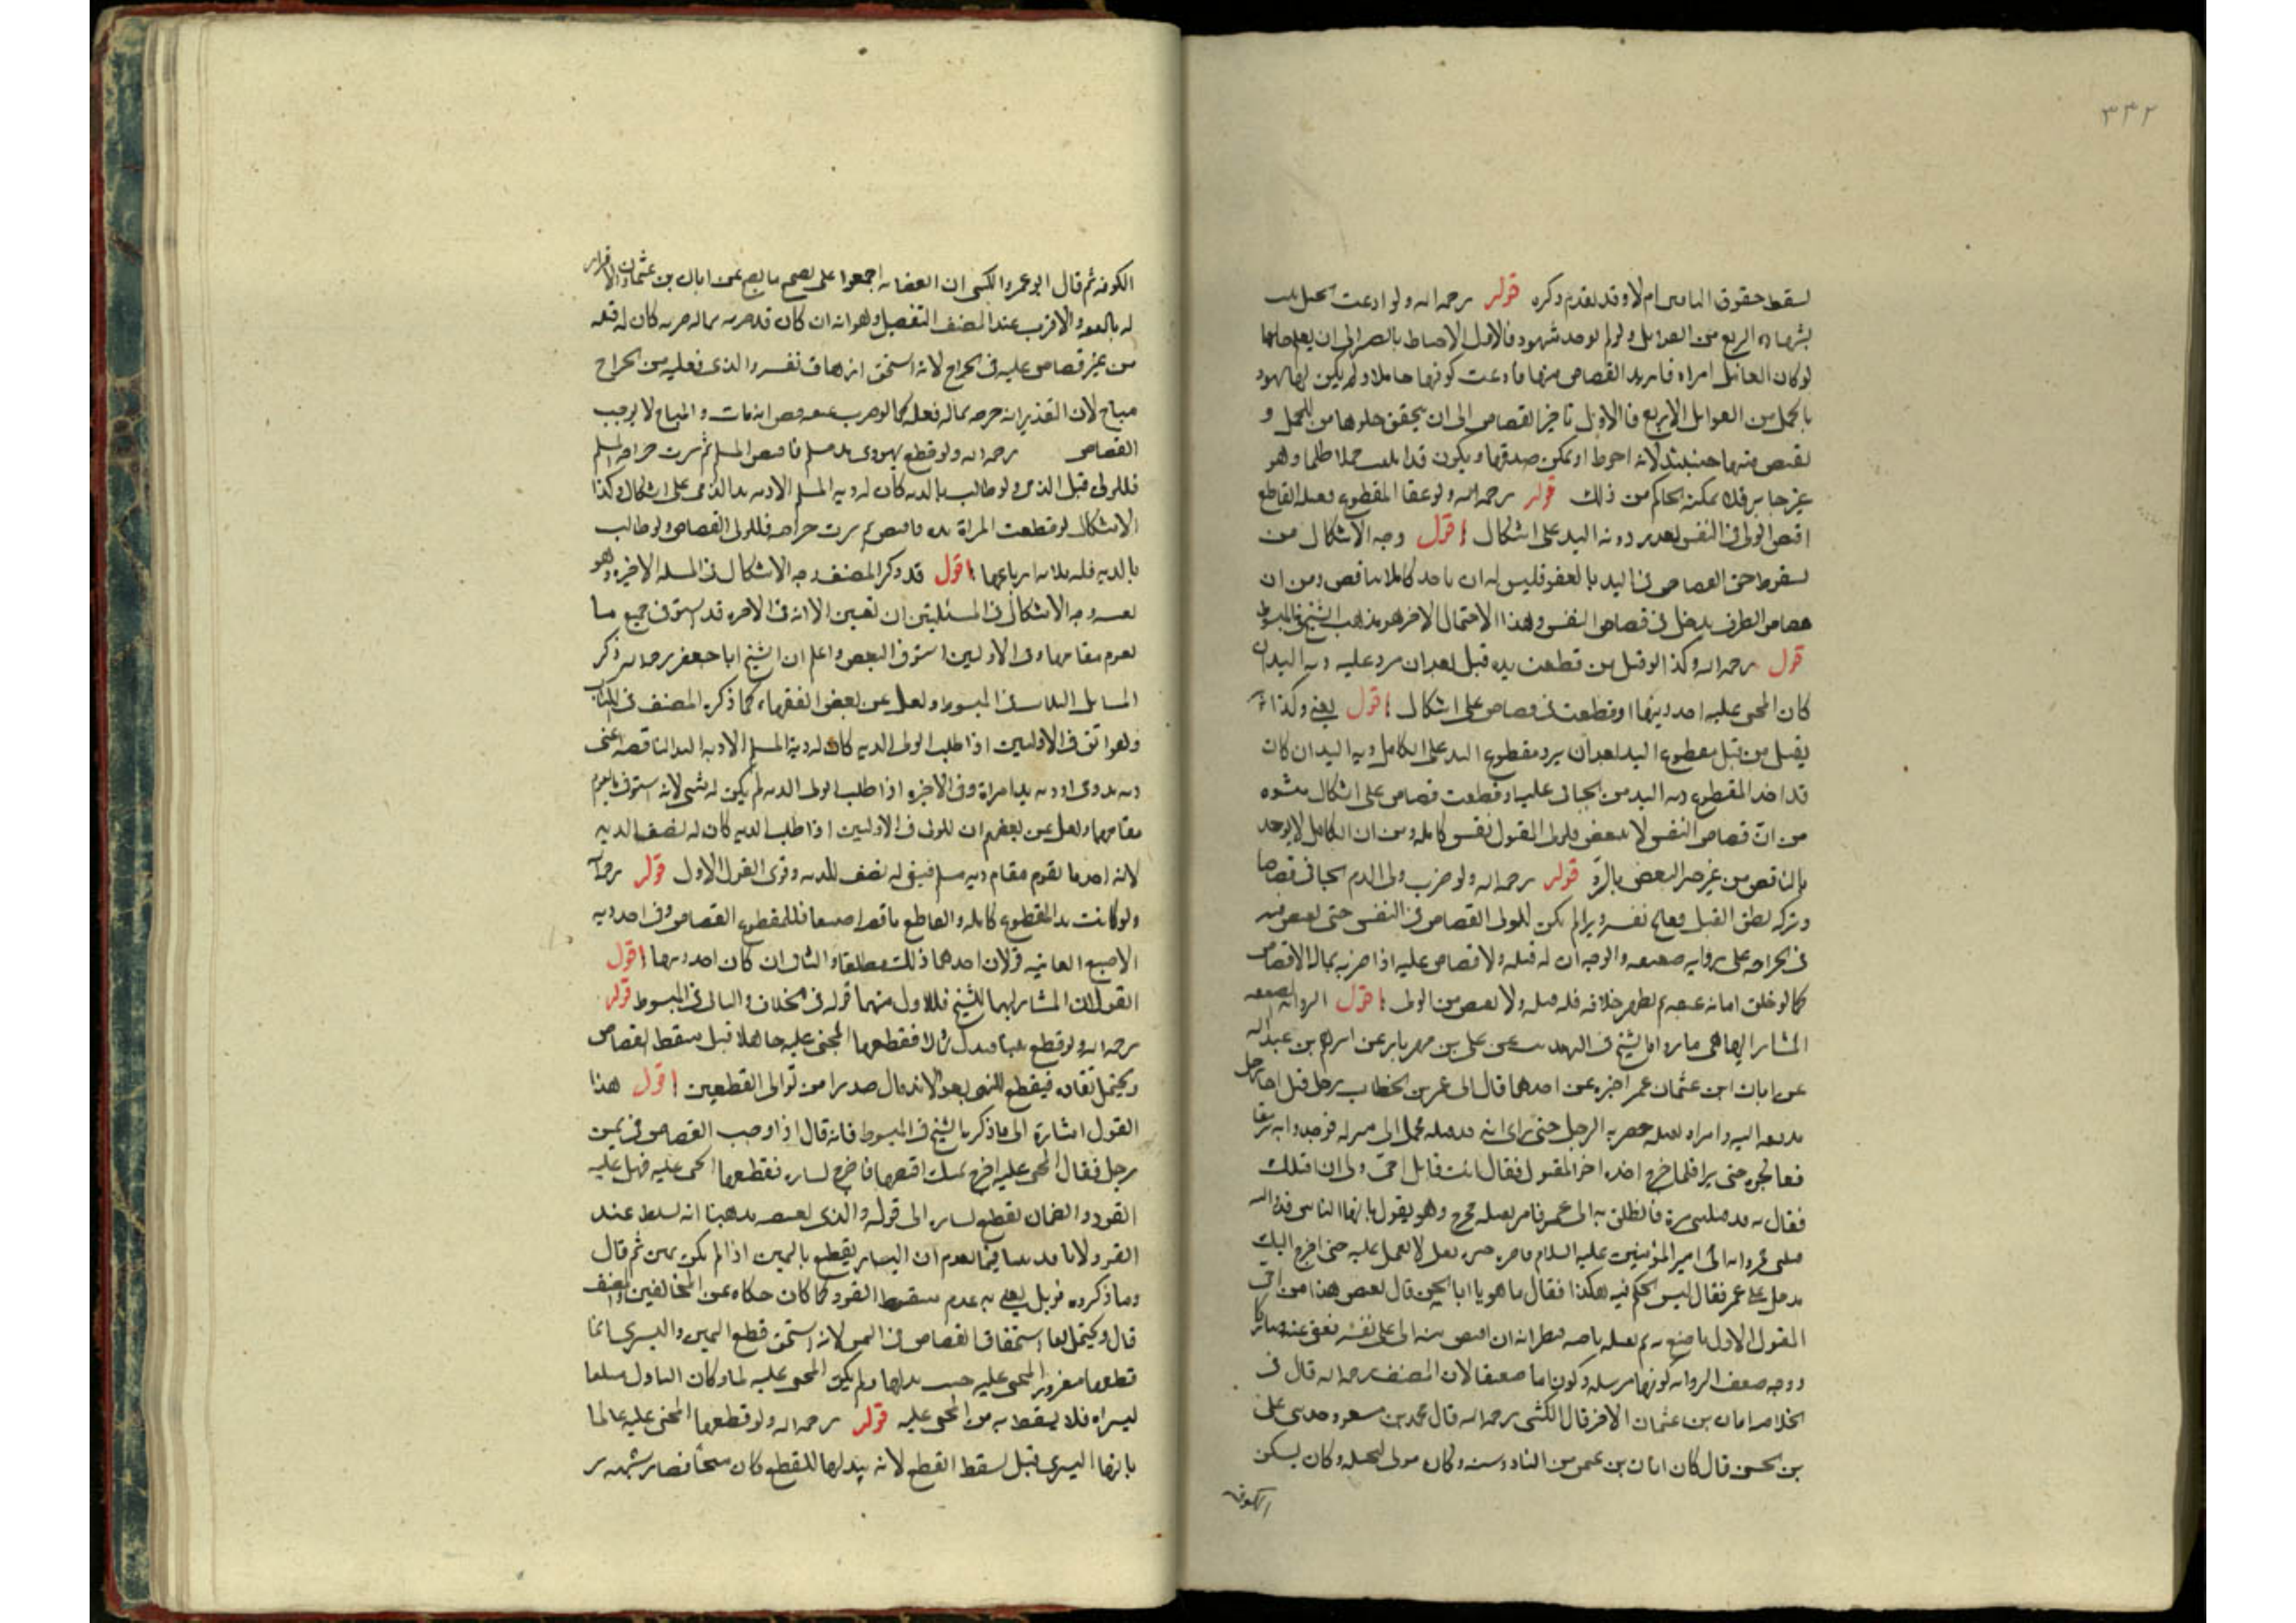 ٣٣٢
لسقط حقوق الباقين ام لا وقد تقدم ذكره قوله رحمه الله ولو ادعت الحبل ثبت
بشهادة اربع من القوابل ولو لم يوجد شهود فالاولى الاحتياط بالصبر الى ان يعلم حالها
لو كان القاتل امراة فاريد القصاص منها فادعت كونها حاملا ولم يكن لها شهود
بالحمل من القوابل الاربع فالاولى تاخير القصاص الى ان يتحقق خلوها من الحمل و
يقتص منها حينئذ لانه احوط اذ يمكن صدقها ويكون قتلها حملا ظلما وهو
غير جايز فلا يمكنه الحاكم من ذلك قوله رحمه الله ولو عفا المقطوع فقتله القاطع
اقتص الولى فى النفس بعد رد دية اليد على اشكال اقول وجه الاشكال من
سقوط حق القصاص فى اليد بالعفو فليس له ان ياخذ كاملا بناقص ومن ان
قصاص الطرف يدخل فى قصاص النفس وهذا الاحتمال الاخر هو مذهب الشيخ فى المبسوط
قوله رحمه الله وكذا لو قتل من قطعت يده قبل بعد ان يرد عليه دية اليد ان
كان المجنى عليه اخذ ديتها او قطعت فى قصاص على اشكال اقول يعنى وكذا
يقتل من قتل مقطوع اليد بعد ان يرد مقطوع اليد على الكامل دية اليد ان كان
قد اخذ المقطوع دية اليد من الجانى عليه او قطعت قصاص على اشكال ينشوه
من ان قصاص النفس لا يتبعض فلولى المقتول نفس كاملة ومن ان الكامل لا يوخذ
بالناقص من غير جبر النقص بالرد قوله رحمه الله ولو ضرب ولى الدم الجانى قصاصا
وتركه بظن القتل فعالج نفسه وبرا لم يكن للولى القصاص فى النفس حتى يقتص منه
فى الجراحة على رواية ضعيفة والوجه ان له قتله ولا قصاص عليه اذا ضربه بماله الاقتصاص
كما لو ظن ابانة عنقه ثم ظهر خلافه فله قتله ولا يقتص من الولى اقول الرواية الضعيفة
المشار اليها هى ما رواه الشيخ فى التهذيب عن على بن مهزيار عن ابراهيم بن عبد الله
عن ابان ابن عثمان عمن اخبره عن احدهما قال اتى عمر بن الخطاب برجل قتل اخا رجل
فدفعه اليه وامره بقتله فضربه الرجل حتى راى انه قد قتله فحمل الى منزله فوجدوا به رمقا
فعالجوه حتى برا فلما خرج اخذه اخو المقتول فقال انت قاتل اخى ولى ان اقتلك
فقال له قد قتلتنى مرة فانطلق به الى عمر فامر بقتله فخرج وهو يقول يا ايها الناس قد والله
قتلنى فمروا به الى امير المؤمنين عليه السلام فاخبره خبره فقال لا تعجل عليه حتى اخرج اليك
فدخل على عمر فقال ليس الحكم فيه هكذا فقال ما هو يا ابا الحسن قال يقتص هذا من اخى
المقتول الاول ما صنع به ثم يقتله باخيه فنظر انه ان اقتص منه اتى على نفسه فعفى عنه وتتاركا
ووجه ضعف الرواية كونها مرسلة وكون ابان ضعيفا لان المصنف رحمه الله قال فى
الخلاصة ابان بن عثمان الاحمر قال الكشى رحمه الله قال محمد بن مسعود حدثنى على
بن الحسن قال كان ابان بن عثمن من الناووسية وكان مولى لبجيلة وكان يسكن
الكوفه
الكوفة ثم قال ابو عمرو الكشى ان العصابة اجمعوا على تصحيح ما يصح عن ابان بن عثمان والاقرار
له بالفقه والاقرب عند المصنف التفصيل وهو انه ان كان قد ضربه بماله ضربه كان له قتله
من غير قصاص عليه فى الجراح لانه استحق ازهاق نفسه والذى فعله من الجراح
مباح لان التقدير انه جرحه بماله فعله كما لو ضرب عنقه فظن انه مات والمباح لا يوجب
القصاص رحمه الله ولو قطع يهودى يد مسلم فاقتص المسلم ثم سرت جراحة المسلم
فللولى قتل الذمى ولو طالب بالدية كان له دية المسلم الا دية يد الذمى على اشكال وكذا
الاشكال لو قطعت المراة يده فاقتص ثم سرت جراحته فللولى القصاص ولو طالب
بالدية فله ثلاثة ارباعها اقول قد ذكر المصنف وجه الاشكال فى المسئلة الاخيرة وهو
بعينه وجه الاشكال فى المسئلتين الا انه فى الاخيرة قد استوفى جميع ما
يقوم مقامها وفى الاوليين استوفى البعض واعلم ان الشيخ ابا جعفر رحمه الله ذكر
المسايل الثلاث فى المبسوط ونقل عن بعض الفقهاء كما ذكره المصنف فى الكتاب
وهو اتفق فى الاوليين اذا طلب الولى الدية كان له دية المسلم الا دية اليد الناقصة اعنى
دية يد ذمى او دية يد امراة وفى الاخيرة اذا طلب الولى الدية لم يكن له شى لانه استوفى ما يقوم
مقامها ونقل عن بعضهم ان للولى فى الاوليين اذا طلب الدية كان له نصف الدية
لانه اخذ ما يقوم مقام دية مسلم فبقى له نصف الدية وقوى القول الاول قوله رحمه الله
ولو كانت يد المقطوع كاملة والقاطع ناقصة اصبعا فللمقطوع القصاص وفى اخذ دية
الاصبع الفائتة قولان احدهما ذلك مطلقا والثانى ان كان اخذ ديتها اقول
القولان المشار اليهما للشيخ فالاول منهما قوله فى الخلاف والثانى فى المبسوط قوله
رحمه الله ولو قطع يمينا فبذل شمالا فقطعها المجنى عليه جاهلا قيل سقط القصاص
ويحتمل بقاؤه فيقطع اليمنى بعد الاندمال حذرا من توالى القطعين اقول هذا
القول اشارة الى ما ذكره الشيخ فى المبسوط فانه قال اذا وجب القصاص فى يمين
رجل فقال المجنى عليه اخرج يمينك اقتصها فاخرج يساره فقطعها المجنى عليه فهل عليه
القود والضمان بقطع يساره الى قوله والذى يقتضيه مذهبنا انه يسقط عنه
القود لانا قد بينا فيما تقدم ان اليسار يقطع باليمين اذا لم يكن يمين ثم قال
وما ذكروه قوبل يعنى به عدم سقوط القود كما كان حكاه عن المخالفين والمصنف
قال ويحتمل بقاء استحقاق القصاص فى اليمنى لانه استحق قطع اليمين واليسرى انما
قطعها مغرورا المجنى عليه حيث بذلها ولم يكن المجنى عليه لها وكان الباذل مبلغا
ليسراه فلا يسقط به من المجنى عليه قوله رحمه الله ولو قطعها المجنى عليه عالما
بانها اليسرى قيل سقط القطع لانه ببذلها للقطع كان مبيحا فصار شبهة